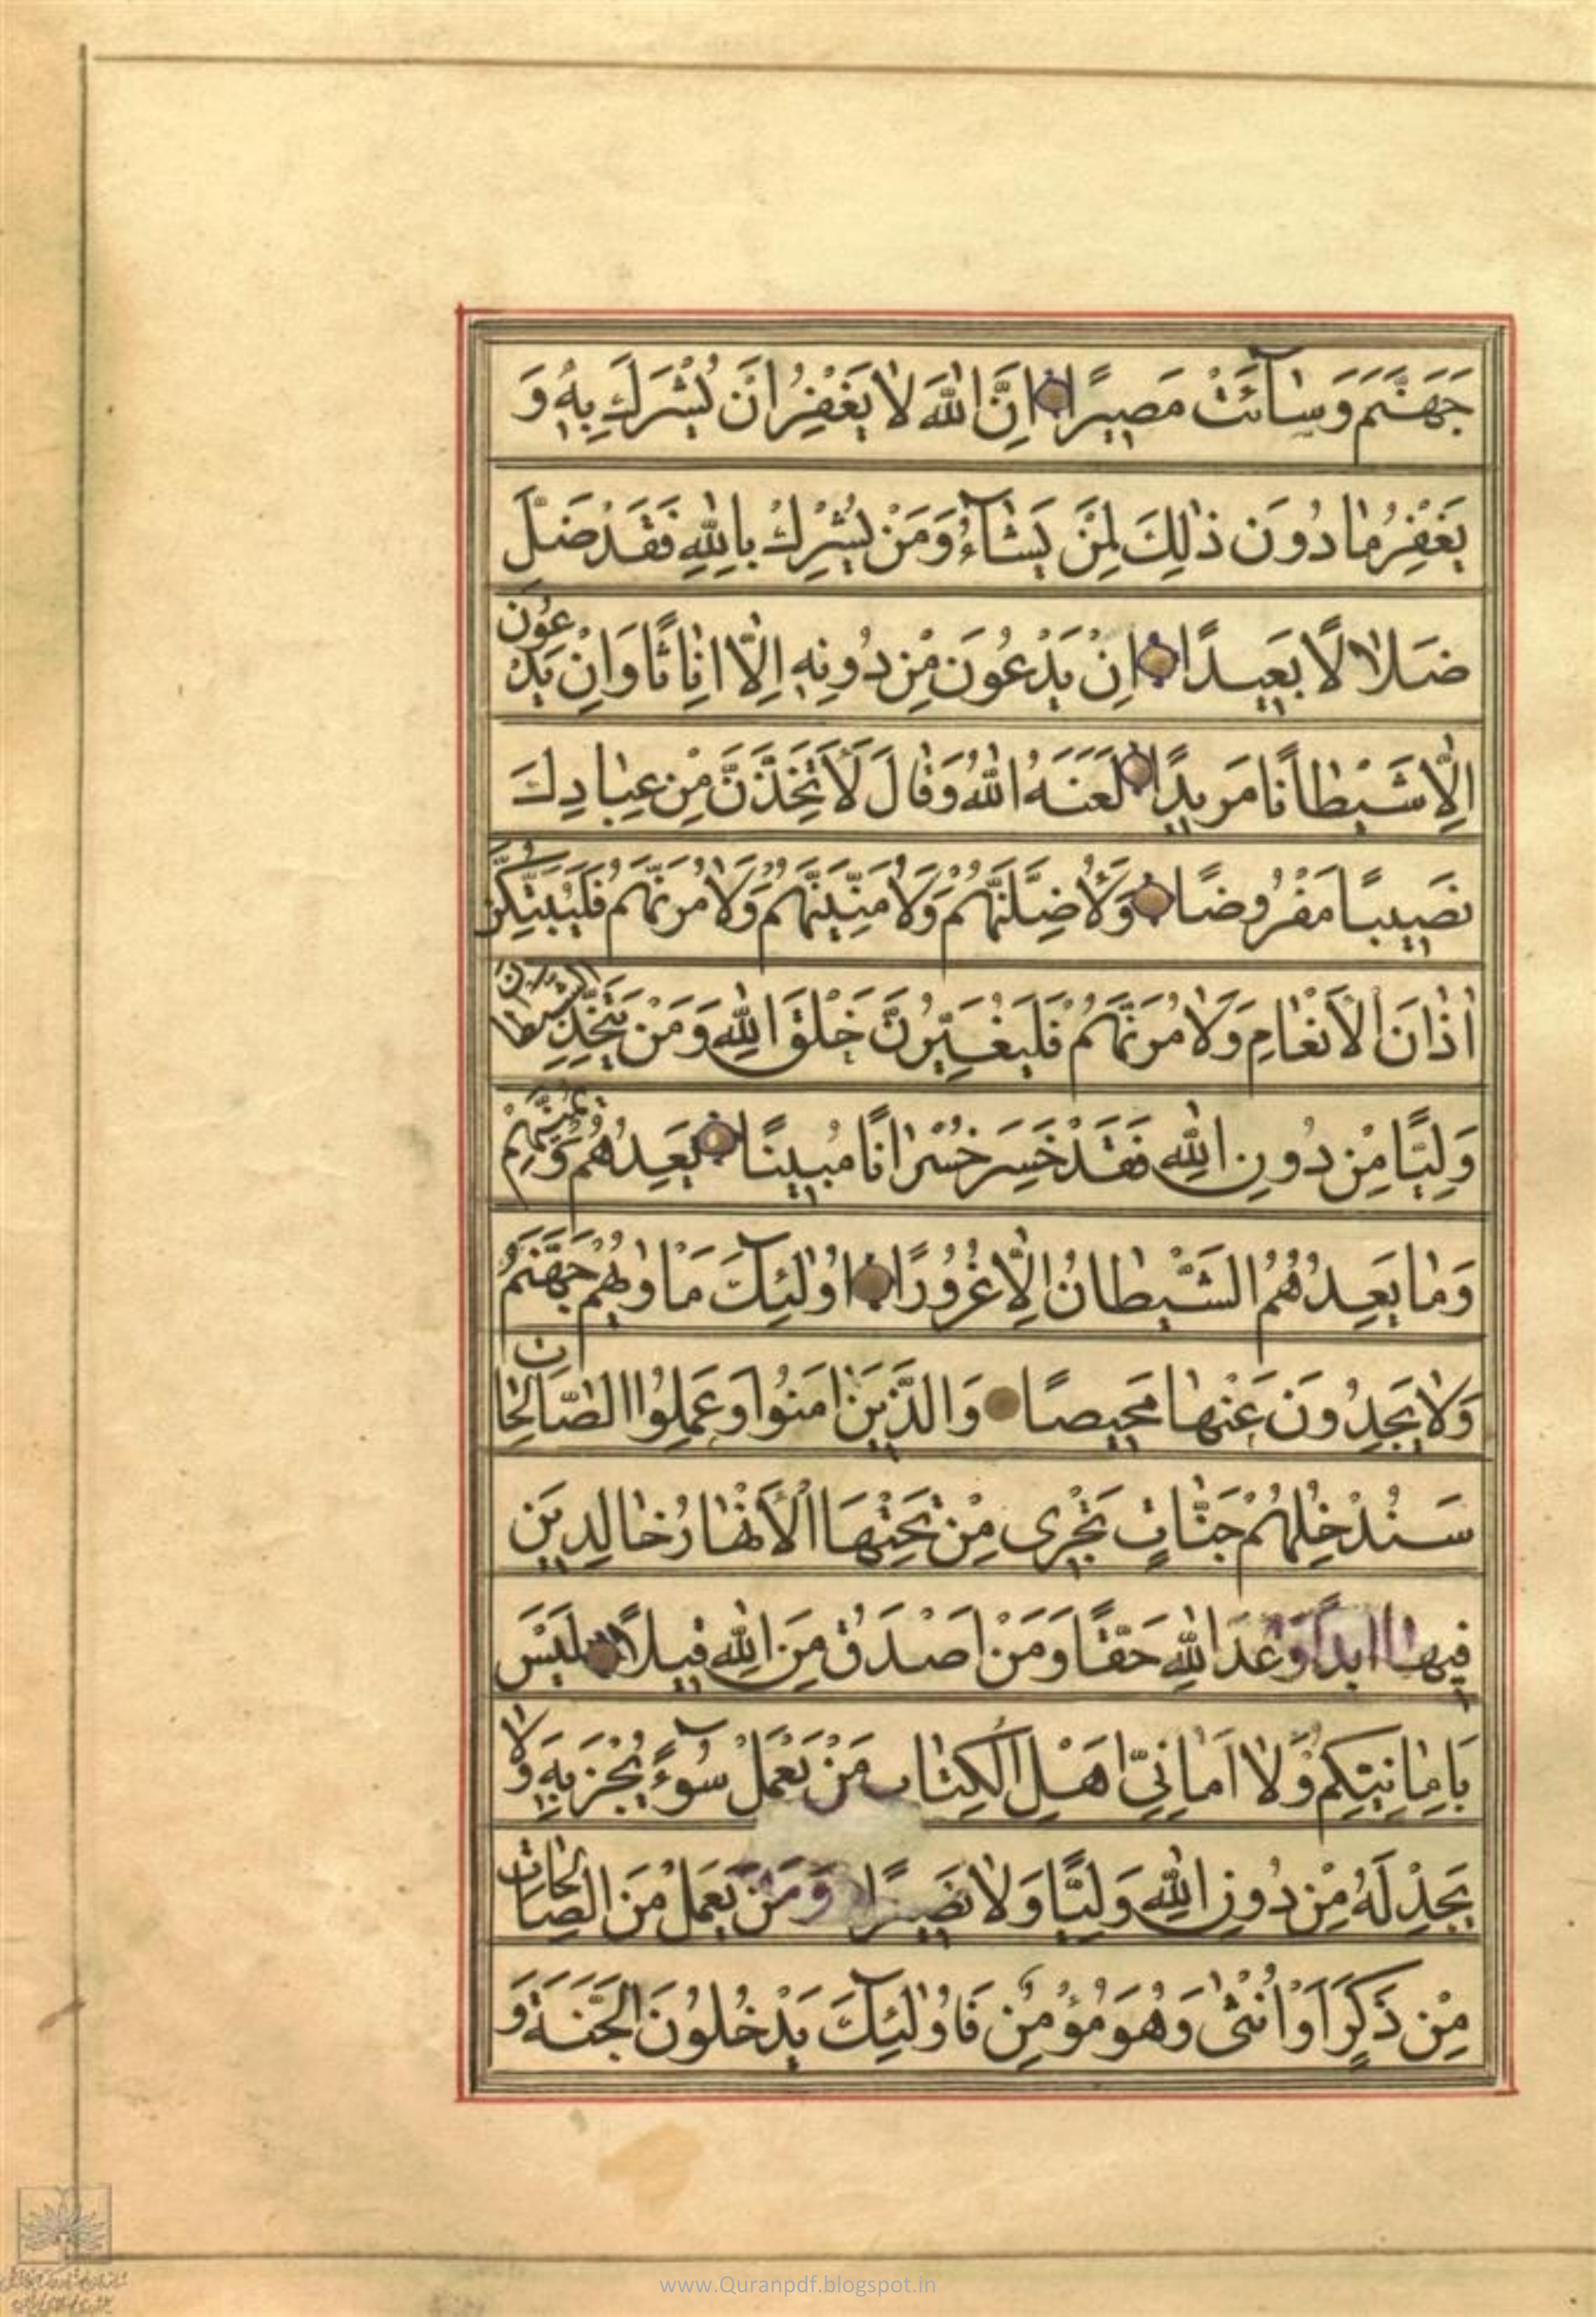 جَهَنَّمَ وَسَآئَتْ مَصِيرًا اِنَّ اللهَ لَا يَغْفِرُ اَنْ يُشْرَكَ بِهِ وَ
يَغْفِرُ مَا دُونَ ذٰلِكَ لِمَنْ يَشَآءُ وَمَنْ يُشْرِكْ بِاللهِ فَقَدْ ضَلَّ
ضَلَالًا بَعِيدًا اِنْ يَدْعُونَ مِنْ دُونِهِ اِلَّا اِنَاثًا وَاِنْ يَدْعُونَ
اِلَّا شَيْطَانًا مَرِيدًا لَعَنَهُ اللهُ وَقَالَ لَأَتَّخِذَنَّ مِنْ عِبَادِكَ
نَصِيبًا مَفْرُوضًا وَلَأُضِلَّنَّهُمْ وَلَأُمَنِّيَنَّهُمْ وَلَاٰمُرَنَّهُمْ فَلَيُبَتِّكُنَّ
اٰذَانَ الْأَنْعَامِ وَلَاٰمُرَنَّهُمْ فَلَيُغَيِّرُنَّ خَلْقَ اللهِ وَمَنْ يَتَّخِذِ الشَّيْطَانَ
وَلِيًّا مِنْ دُونِ اللهِ فَقَدْ خَسِرَ خُسْرَانًا مُبِينًا يَعِدُهُمْ وَيُمَنِّيهِمْ
وَمَا يَعِدُهُمُ الشَّيْطَانُ اِلَّا غُرُورًا اُولٰئِكَ مَاْوٰيهُمْ جَهَنَّمُ
وَلَا يَجِدُونَ عَنْهَا مَحِيصًا وَالَّذِينَ اٰمَنُوا وَعَمِلُوا الصَّالِحَاتِ
سَنُدْخِلُهُمْ جَنَّاتٍ تَجْرِى مِنْ تَحْتِهَا الْأَنْهَارُ خَالِدِينَ
فِيهَا اَبَدًا وَعْدَ اللهِ حَقًّا وَمَنْ اَصْدَقُ مِنَ اللهِ قِيلًا لَيْسَ
بِاَمَانِيِّكُمْ وَلَا اَمَانِيِّ اَهْلِ الْكِتَابِ مَنْ يَعْمَلْ سُوٓءً يُجْزَ بِهِ وَلَا
يَجِدْ لَهُ مِنْ دُونِ اللهِ وَلِيًّا وَلَا نَصِيرًا وَمَنْ يَعْمَلْ مِنَ الصَّالِحَاتِ
مِنْ ذَكَرٍ اَوْ اُنْثٰى وَهُوَ مُؤْمِنٌ فَاُولٰئِكَ يَدْخُلُونَ الْجَنَّةَ وَ
www.Quranpdf.blogspot.in